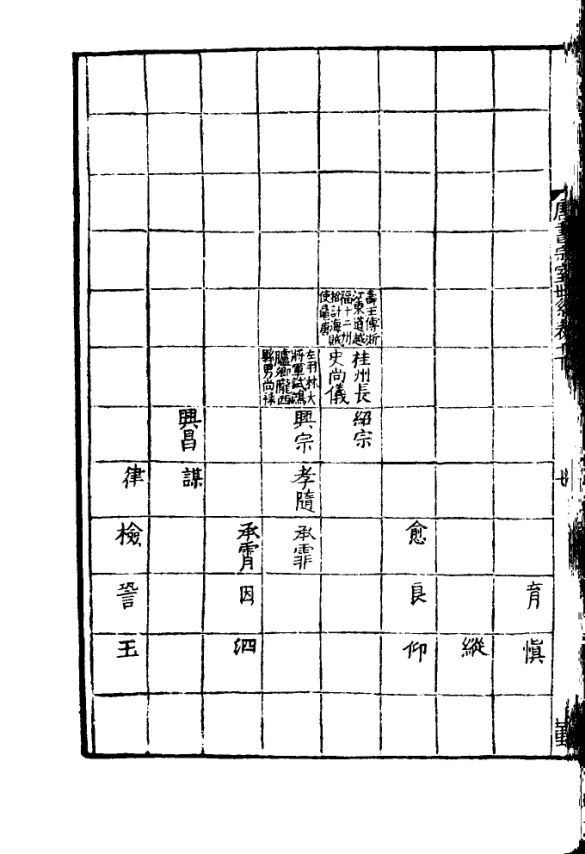 唐書宗室世系表
廿
育
慎
縱
愈
良
仰
壽王傅浙
江東道越
福十二州
招討海賊
桂州長
史尚儀
紹宗
左羽林大
將軍試鴻
臚卿隴西
縣男尚祿
興宗
孝隨
承霏
承霄
因
泗
興昌
謀
律
檢
詧
玉